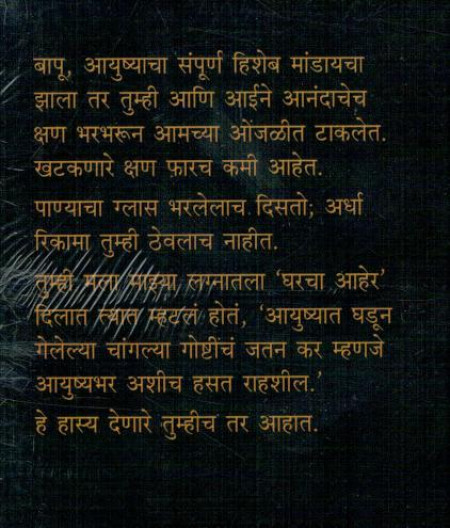 बापू, आयुष्याचा संपूर्ण हिशेब मांडायचा
झाला तर तुम्ही आणि आईने आनंदाचेच
क्षण भरभरून आमच्या ओंजळीत टाकलेत.
खटकणारे क्षण फ़ारच कमी आहेत.
पाण्याचा ग्लास भरलेलाच दिसतो; अर्धा
रिकामा तुम्ही ठेवलाच नाहीत.
तुम्ही मला माझ्या लग्नातला ‘घरचा आहेर’
दिलात त्यात म्हटलं होतं, ‘आयुष्यात घडून
गेलेल्या चांगल्या गोष्टींचं जतन कर म्हणजे
आयुष्यभर अशीच हसत राहशील.’
हे हास्य देणारे तुम्हीच तर आहात.